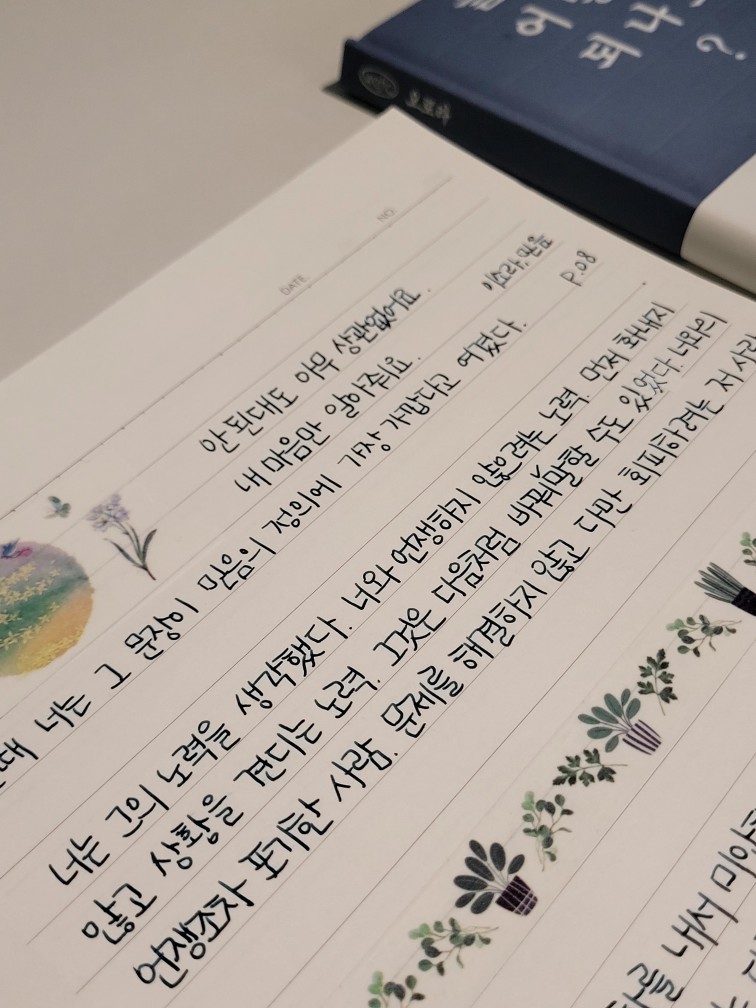 어 떠나?
오로라
NO.
DATE
안 판대도 아무 상관없어요.
내 마음만 알아줘요.
최진영, 믿음
P.08
때 너는 그 문장이 믿음의 정의에 가장 가깝다고 여겼다.
너는 그의 노력을 생각했다. 너와 언쟁하지 않으려는 노력. 먼저 화내지
않고 상황을 견디는 노력. 그것은 다음처럼 바꿔말할 수도 있었다. 너와의
언쟁조차 포기한 사람. 문제를 해결하지 않고 다만 회피하려는 저 사람
내서